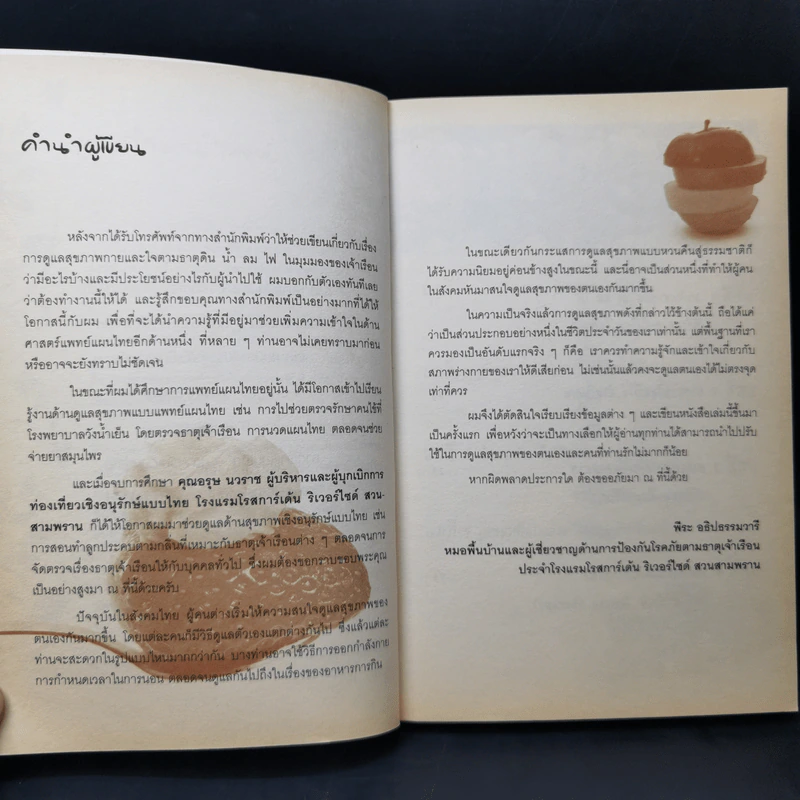 คำนำผู้เขียน
หลังจากได้รับโทรศัพท์จากทางสำนักพิมพ์ว่าให้ช่วยเขียนเกี่ยวกับเรื่อง
การดูแลสุขภาพกายและใจตามธาตุดิน น้ำ ลม ไฟ ในมุมมองของเจ้าเรือน
ว่ามีอะไรบ้างและมีประโยชน์อย่างไรกับผู้นำไปใช้ ผมบอกกับตัวเองทันทีเลย
ว่าต้องทำงานนี้ให้ได้ และรู้สึกขอบคุณทางสำนักพิมพ์เป็นอย่างมากที่ได้ให้
โอกาสนี้กับผม เพื่อที่จะได้นำความรู้ที่มีอยู่มาช่วยเพิ่มความเข้าใจในด้าน
ศาสตร์แพทย์แผนไทยอีกด้านหนึ่ง ที่หลาย ๆ ท่านอาจไม่เคยทราบมาก่อน
หรืออาจจะยังทราบไม่ชัดเจน
ในขณะที่ผมได้ศึกษาการแพทย์แผนไทยอยู่นั้น ได้มีโอกาสเข้าไปเรียน
รู้งานด้านดูแลสุขภาพแบบแพทย์แผนไทย เช่น การไปช่วยตรวจรักษาคนไข้ที่
โรงพยาบาลวังน้ำเย็น โดยตรวจธาตุเจ้าเรือน การนวดแผนไทย ตลอดจนช่วย
จ่ายยาสมุนไพร
และเมื่อจบการศึกษา คุณอรุษ นวราช ผู้บริหารและผู้บุกเบิกการ
ท่องเที่ยวเชิงอนุรักษ์แบบไทย โรงแรมโรสการ์เด้น ริเวอร์ไซด์ สวน-
สามพราน ก็ได้ให้โอกาสผมมาช่วยดูแลด้านสุขภาพเชิงอนุรักษ์แบบไทย เช่น
การสอนทำลูกประคบตามกลิ่นที่เหมาะกับธาตุเจ้าเรือนต่าง ๆ ตลอดจนการ
จัดตรวจเรื่องธาตุเจ้าเรือนให้กับบุคคลทั่วไป ซึ่งผมต้องขอกราบขอบพระคุณ
เป็นอย่างสูงมา ณ ที่นี้ด้วยครับ
ปัจจุบันในสังคมไทย ผู้คนต่างเริ่มให้ความสนใจดูแลสุขภาพของ
ตนเองกันมากขึ้น โดยแต่ละคนก็มีวิธีดูแลตัวเองแตกต่างกันไป ซึ่งแล้วแต่ละ
ท่านจะสะดวกในรูปแบบไหนมากกว่ากัน บางท่านอาจใช้วิธีการออกกำลังกาย
การกำหนดเวลาในการนอน ตลอดจนดูแลกันไปถึงในเรื่องของอาหารการกิน
ในขณะเดียวกันกระแสการดูแลสุขภาพแบบหวนคืนสู่ธรรมชาติก็
ได้รับความนิยมอยู่ค่อนข้างสูงในขณะนี้ และนี่อาจเป็นส่วนหนึ่งที่ทำให้ผู้คน
ในสังคมหันมาสนใจดูแลสุขภาพของตนเองกันมากขึ้น
ในความเป็นจริงแล้วการดูแลสุขภาพดังที่กล่าวไว้ข้างต้นนี้ ถือได้แค่
ว่าเป็นส่วนประกอบอย่างหนึ่งในชีวิตประจำวันของเราเท่านั้น แต่พื้นฐานที่เรา
ควรมองเป็นอันดับแรกจริง ๆ ก็คือ เราควรทำความรู้จักและเข้าใจเกี่ยวกับ
สภาพร่างกายของเราให้ดีเสียก่อน ไม่เช่นนั้นแล้วคงจะดูแลตนเองได้ไม่ตรงจุด
เท่าที่ควร
ผมจึงได้ตัดสินใจเรียบเรียงข้อมูลต่าง ๆ และเขียนหนังสือเล่มนี้ขึ้นมา
เป็นครั้งแรก เพื่อหวังว่าจะเป็นทางเลือกให้ผู้อ่านทุกท่านได้สามารถนำไปปรับ
ใช้ในการดูแลสุขภาพของตนเองและคนที่ท่านรักไม่มากก็น้อย
หากผิดพลาดประการใด ต้องขออภัยมา ณ ที่นี้ด้วย
พีระ อธิปธรรมวารี
หมอพื้นบ้านและผู้เชี่ยวชาญด้านการป้องกันโรคภัยตามธาตุเจ้าเรือน
ประจำโรงแรมโรสการ์เด้น ริเวอร์ไซด์ สวนสามพราน